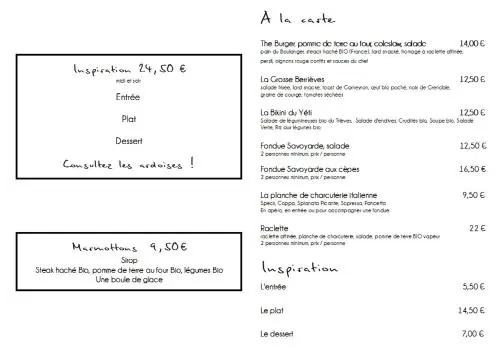 Inspiration 24,50 €
midi et soir
Entrée
Plat
Dessert
Consultez les ardoises !
Marmottons 9,50€
Sirop
Steak haché Bio, pomme de terre au four Bio, légumes Bio
Une boule de glace
A la carte
The Burger, pomme de terre au four, coleslaw, salade 14,00 €
pain du Boulanger, steak haché BIO (France), lard snacké, fromage à raclette affinée,
persil, oignons rouge confits et sauces du chef
La Grosse Berrièves 12,50 €
salade frisée, lard snacké, toast de Cameyron, œuf bio poché, noix de Grenoble,
graine de courge, tomates séchées
La Bikini du Yéti 12,50 €
Salade de légumineuses bio du Trièves, Salade d'endives, Crudités bio, Soupe bio, Salade
Verte, Riz aux légumes bio
Fondue Savoyarde, salade 12,50 €
2 personnes minimum, prix / personne
Fondue Savoyarde aux cèpes 16,50 €
2 personnes minimum, prix / personne
La planche de charcuterie italienne 9,50 €
Speck, Coppa, Spianata Picante, Sopressa, Pancetta
En apéro, en entrée ou pour accompagner une fondue
Raclette 22 €
raclette affinée, planche de charcuterie, salade, pomme de terre BIO vapeur
2 personnes minimum, prix / personne
Inspiration
L'entrée 5,50 €
Le plat 14,50 €
Le dessert 7,00 €